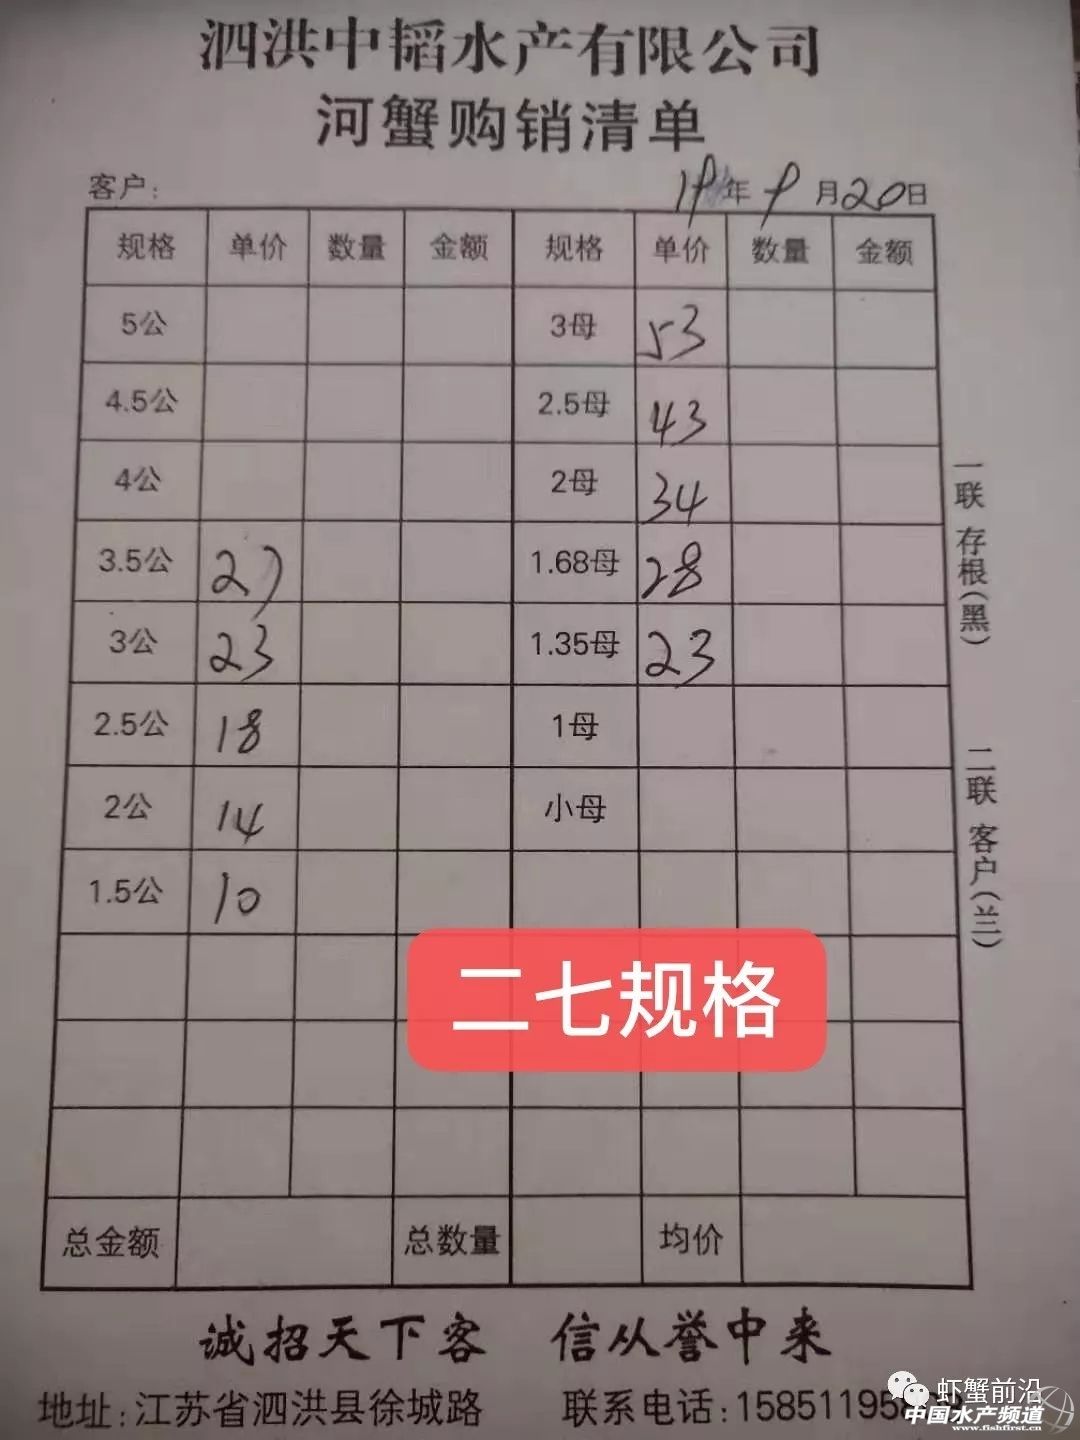 泗洪中韬水产有限公司
河蟹购销清单
客户: 19年9月20日
规格 单价 数量 金额 规格 单价 数量 金额
5公 3母 53
4.5公 2.5母 43
4公 2母 34
3.5公 27 1.68母 28
3公 23 1.35母 23
2.5公 18 1母
2公 14 小母
1.5公 10
二七规格
总金额 总数量 均价
一联 存根(黑)
二联 客户(兰)
诚招天下客 信从誉中来
地址:江苏省泗洪县徐城路 联系电话:158511958
虾蟹前沿
中国水产频道
www.fishfirst.cn